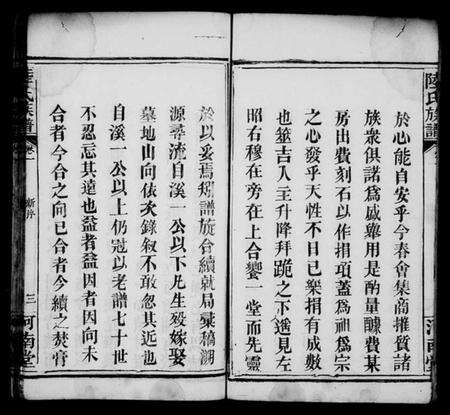 陸氏族譜
於心能自安乎今春會集商摧質諸
族衆俱諾爲咸舉用是酌量醵費某
房出費刻石以作捐項蓋爲祖爲宗
之心發乎天性不日已樂捐有成數
也筮吉人主升降拜跪之下遜見左
昭右穆在旁在上合饗一堂而先靈
於以妥焉爰譜旋台續就局稾橋溯
源尋流自溪一公以下凡生殁嫁娶
墓地山向依次錄叙不敢忽其近也
自溪一公以上仍冠以老譜七十世
不忍忘其遠也益者益因者因向未
合者今合之向已合者今續之焚膏
氏族譜
新序
三
河南堂